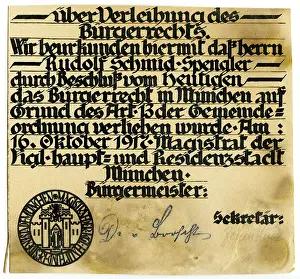 über Verleihung des
Bürgerrechts.
Wir beurkunden hiermit daß herrn
Rudolf Schmid, Spengler
durch Beschluß vom heutigen
das Bürgerrecht in München auf
Grund des Art. 13 der Gemeinde-
ordnung verliehen wurde. Am:
16. Oktober 1917. Magistrat der
Kgl. haupt- und Residenzstadt
München.
Bürgermeister:
Sekretär:
Dr. v. Borscht